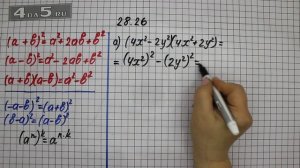 4DA5.RU
28.26
(a+b)²=a²+2ab+b²
(a-b)²=a²-2ab+b²
(a+b)(a-b)=a²-b²
(-a-b)²=(a+b)²
(b-a)²=(a-b)²
(aⁿ)ᵏ=aⁿ·ᵏ
а) (4x²-2y²)(4x²+2y²)=
=(4x²)²-(2y²)²=